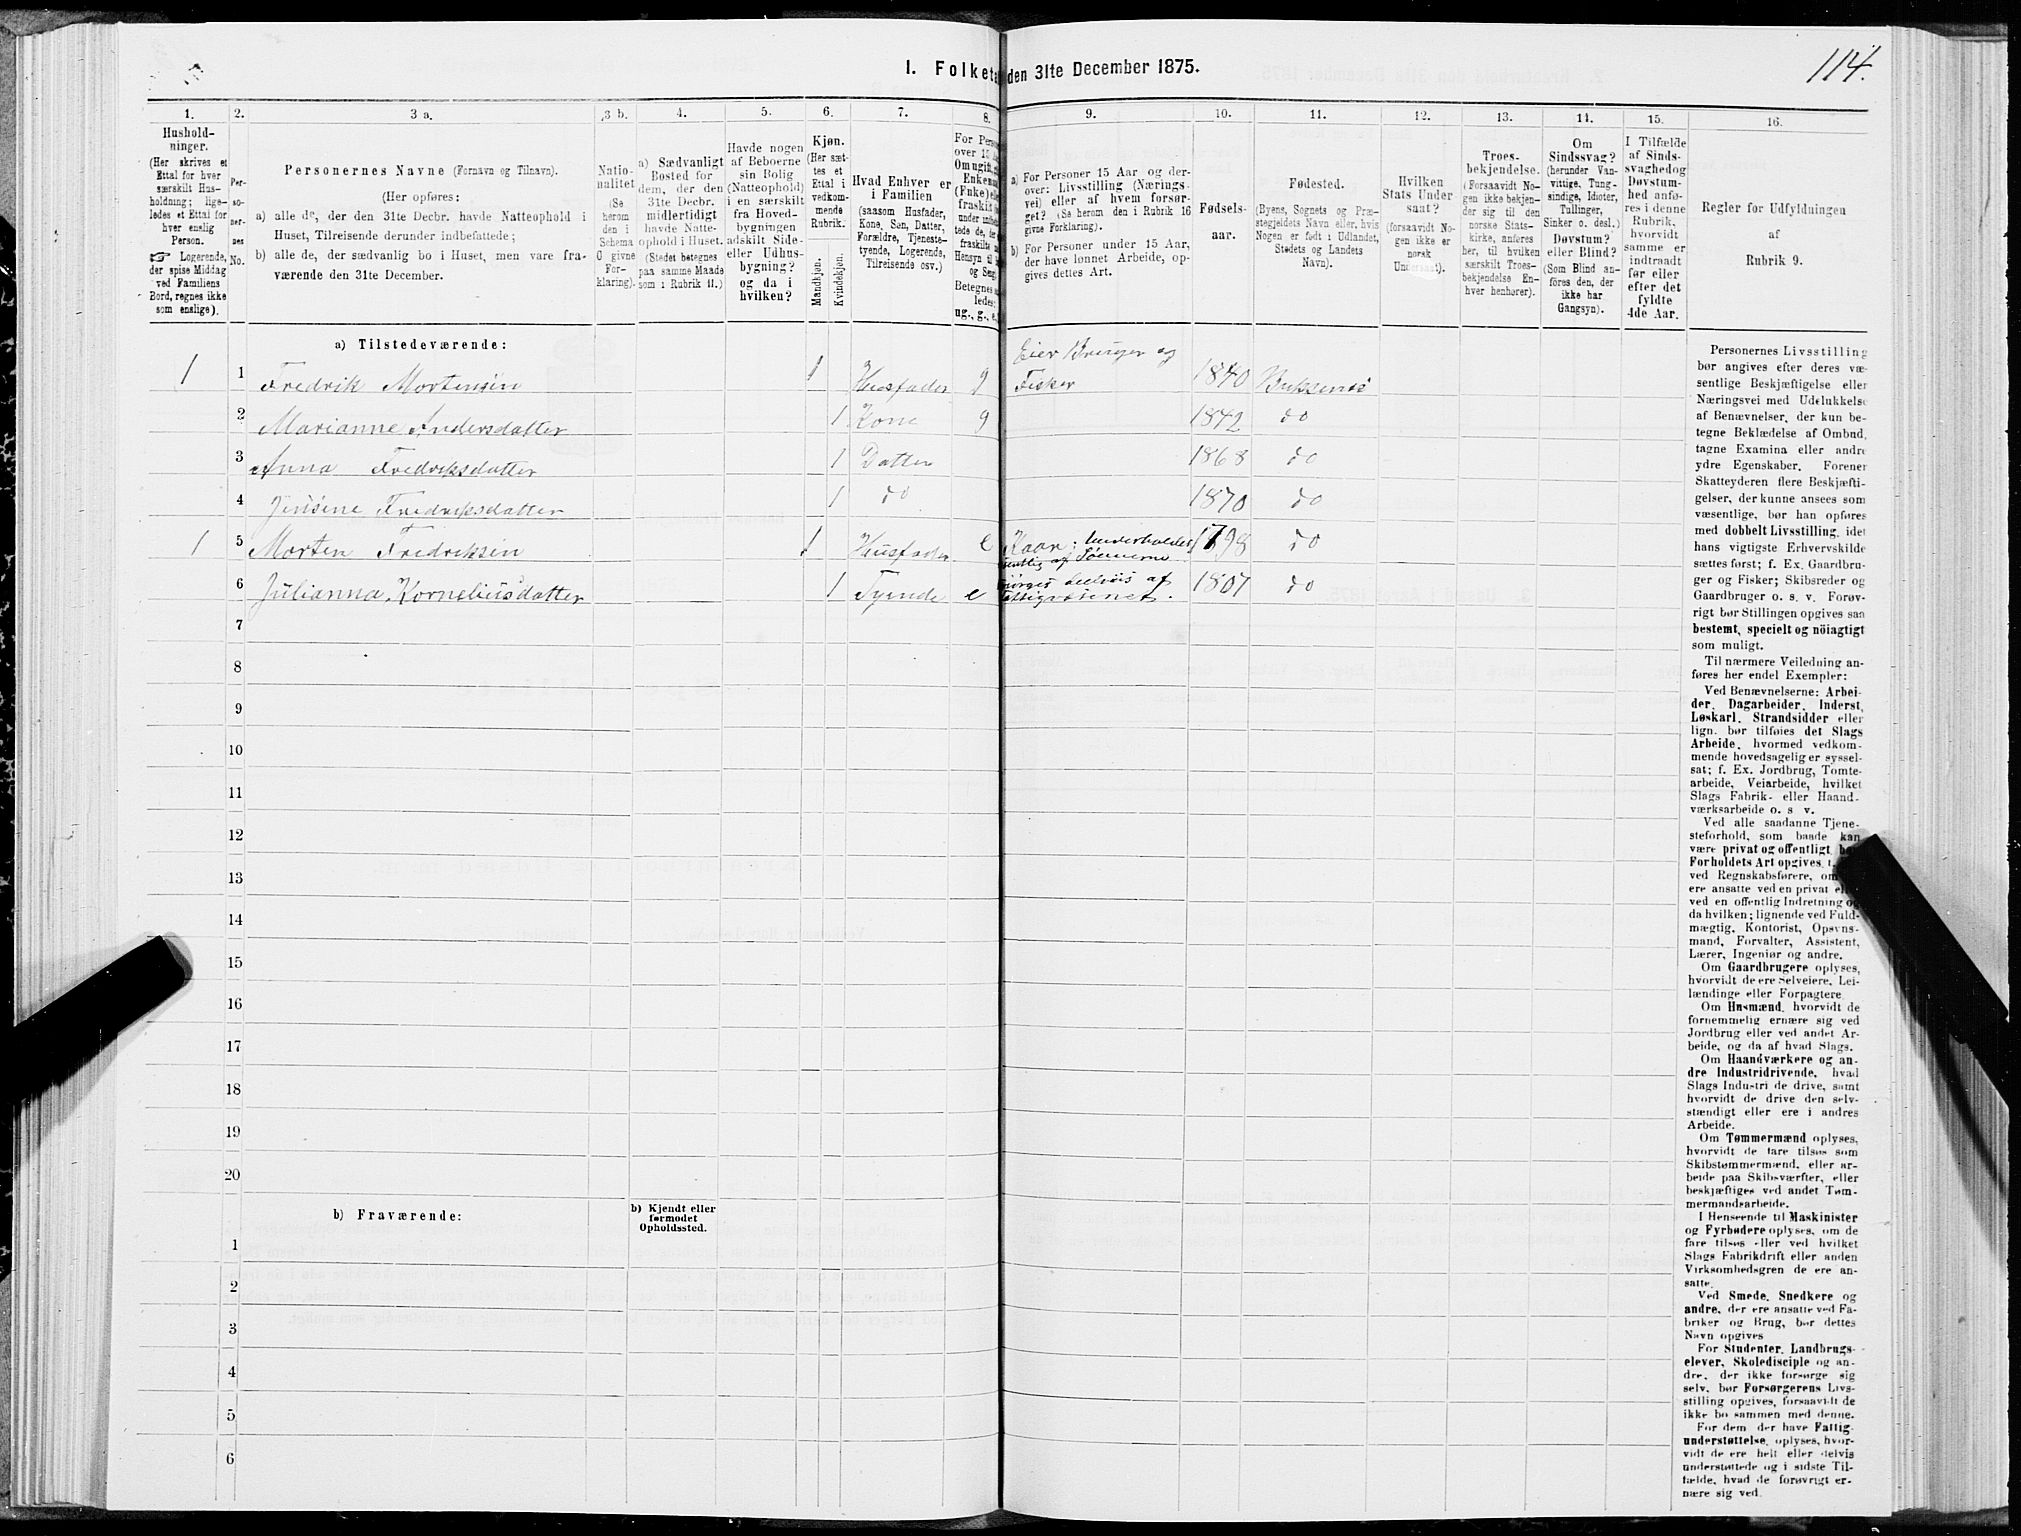 114.
I. Folketa den 31te December 1875.
1. 2. 3 a. 3 b. 4. 5. 6. 7. 8. 9. 10. 11. 12. 13. 14. 15. 16.
Hushold-
ninger.
(Her skrives et
Ettal for hver
særskilt Hus-
holdning; lige-
ledes et Ettal for
hver enslig
Person.
☞ Logerende,
der spise Middag
ved Familiens
Bord, regnes ikke
som enslige).
Per-
so-
ner-
nes
No.
Personernes Navne (Fornavn og Tilnavn).
(Her opføres:
a) alle de, der den 31te Decbr. havde Natteophold i
Huset, Tilreisende derunder indbefattede;
b) alle de, der sædvanlig bo i Huset, men vare fra-
værende den 31te December.
Natio-
nalitet
(Se
herom
den i
Schema
O givne
For-
klaring).
a) Sædvanligt
Bosted for
dem, der den
31te Decbr.
midlertidigt
havde Natte-
ophold i Huset.
(Stedet betegnes
paa samme Maade
som i Rubrik 11.)
Havde nogen
af Beboerne
sin Bolig
(Natteophold)
i en særskilt
fra Hoved-
bygningen
adskilt Side-
eller Udhus-
bygning?
og da i
hvilken?
Kjøn.
(Her sæt-
tes et
Ettal i
vedkom-
mende
Rubrik.
Mandkjøn.
Kvindekjøn.
Hvad Enhver er
i Familien
(saasom Husfader,
Kone, Søn, Datter,
Forældre, Tjeneste-
tyende, Logerende,
Tilreisende osv.)
For Perso
over 15 A
Om ugift,
Enkem
(Fnke) el
fraskilt
under indbe
tede de,
fraskilte
Hensyn til
og Seng.
Betegnes
ledes:
ug., g., e.,
a) For Personer 15 Aar og der-
over: Livsstilling (Nærings-
vei) eller af hvem forsør-
get? (Se herom den i Rubrik 16
givne Forklaring).
b) For Personer under 15 Aar,
der have lønnet Arbeide, op-
gives dettes Art.
Fødsels-
aar.
Fødested.
(Byens, Sognets og Præ-
stegjeldets Navn eller, hvis
Nogen er født i Udlandet,
Stedets og Landets
Navn).
Hvilken
Stats Under
saat?
(forsaavidt No-
gen ikke er
norsk
Undersaat).
Troes-
bekjendelse.
(Forsaavidt No-
gen ikke bekjen-
der sig til den
norske Stats-
kirke, anføres
her, til hvilken
særskilt Troes-
bekjendelse En-
hver henhører).
Om
Sindssvag?
(herunder Van-
vittige, Tung-
sindige, Idioter,
Tullinger,
Sinker o. desl.)
Døvstum?
eller Blind?
(Som Blind an-
føres den, der
ikke har
Gangsyn).
I Tilfælde
af Sinds-
svaghed og
Døvstum-
hed anfø-
res i denne
Rubrik,
hvorvidt
samme er
indtraadt
før eller
efter det
fyldte
4de Aar.
Regler for Udfyldningen
af
Rubrik 9.
a) Tilstedeværende:
Eier Bruger og
1 1 Fredrik Mortensin 1 Husfader g Fisker 1840 Buksenæs
2 Marianne Andersdatter 1 Kone g 1842 do
3 Anna Fredriksdatter 1 Datter 1868 do
4 Jensine Fredriksdatter 1 do 1870 do
1 5 Morten Fredriksin 1 Husfader e Kaar; Underholdes 1798 do
af Sönnerne
6 Julianna Kornehusdatter 1 Tyende e 1807 do
7
8
9
10
11
12
13
14
15
16
17
18
19
20
b) Fraværende:
b) Kjendt eller
formodet
Opholdssted.
1
2
3
4
5
6
Personernes Livsstilling
bør angives efter deres væ-
sentlige Beskjæftigelse eller
Næringsvei med Udelukkelse
af Benævnelser, der kun be-
tegne Beklædelse af Ombud,
tagne Examina eller andre
ydre Egenskaber. Forener
Skatteyderen flere Beskjæfti-
gelser, der kunne ansees som
væsentlige, bør han opføres
med dobbelt Livsstilling, idet
hans vigtigste Erhvervskilde
sættes først; f. Ex. Gaardbru-
ger og Fisker; Skibsreder og
Gaardbruger o. s. v. Forøv-
rigt bør Stillingen opgives saa
bestemt, specielt og nöiagtigt
som muligt.
Til nærmere Veiledning an-
føres her endel Exempler:
Ved Benævnelserne: Arbei-
der, Dagarbeider, Inderst,
Løskarl, Strandsidder eller
lign. bør tilføies det Slags
Arbeide, hvormed vedkom-
mende hovedsagelig er syssel-
sat; f. Ex. Jordbrug, Tomte-
arbeide, Veiarbeide, hvilket
Slags Fabrik- eller Haand-
værksarbeide o. s. v.
Ved alle saadanne Tjene-
steforhold, som baade kan
være privat og offentlig, bør
Forholdets Art opgives,
ved Regnskabsførere, om
ere ansatte ved en privat eller
ved en offentlig Indretning og
da hvilken; lignende ved Fuld-
mægtig, Kontorist, Opsyns-
mand, Forvalter, Assistent,
Lærer, Ingeniør og andre.
Om Gaardbrugere oplyses,
hvorvidt de ere Selveiere, Lei-
lændinge eller Forpagtere.
Om Husmænd, hvorvidt de
fornemmelig ernære sig ved
Jordbrug eller ved andet Ar-
beide, og da af hvad Slags.
Om Haandværkere og an-
dre Industridrivende, hvad
Slags Industri de drive, samt
hvorvidt de drive den selv-
stændigt eller ere i andres
Arbeide.
Om Tømmermænd oplyses,
hvorvidt de fare tilsøs som
Skibstømmermænd, eller ar-
beide paa Skibsværfter, eller
beskjæftiges ved andet Tøm-
mermandsarbeide.
I Henseende til Maskinister
og Fyrbødere oplyses, om de
fare tilsøs eller ved hvilket
Slags Fabrikdrift eller anden
Virksomhedsgren de ere an-
satte.
Ved Smede, Snedkere og
andre, der ere ansatte ved Fa-
briker og Brug, bør dettes
Navn opgives
For Studenter, Landbrugs-
elever, Skoledisciple og an-
dre, der ikke forsørge sig
selv, bør Forsørgerens Livs-
stilling opgives, forsaavidt de
ikke bo sammen med denne.
For dem, der have Fattig-
understøttelse, oplyses, hvor-
vidt de ere helt eller delvis
understøttede og i sidste Til-
fælde, hvad de forøvrigt er-
nære sig ved.